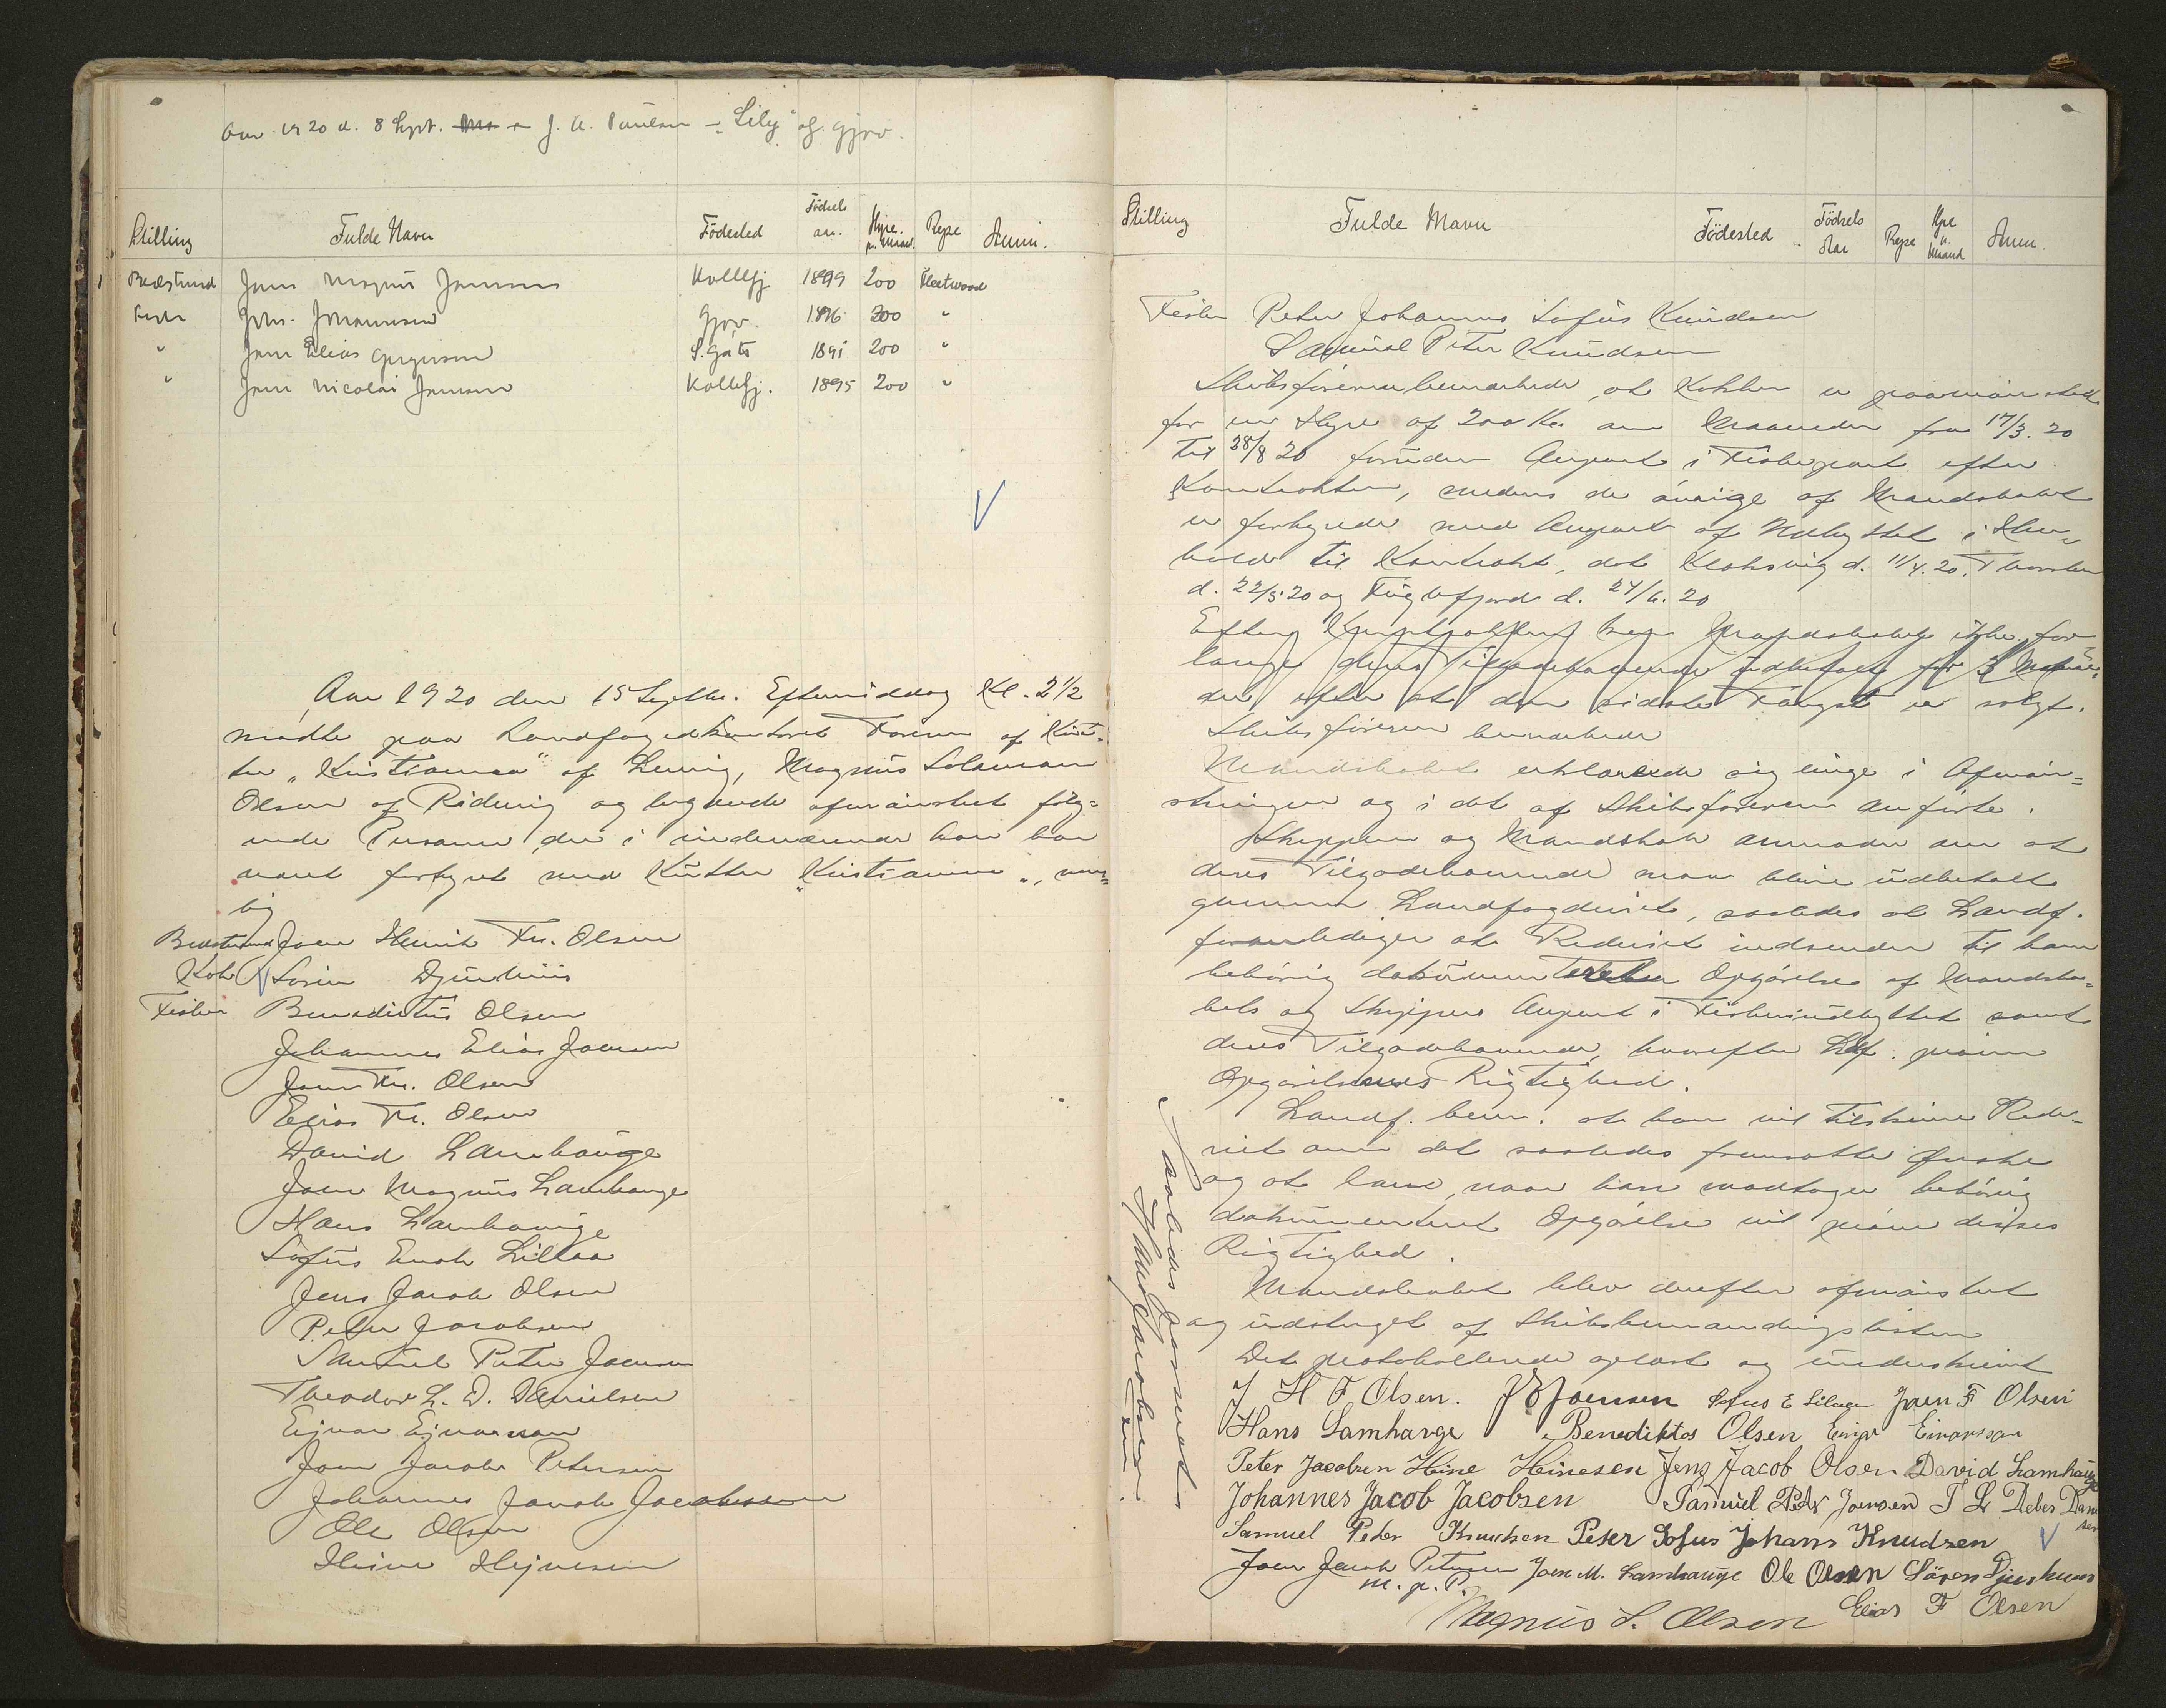 Aar 1920 d. 8 Sept. J. A. Poulsen - "Lily" af Gjov.
Stilling Fulde Navn Födested Födsels aar. Hyre p. Maaned. Rejse Anm.
Bedstmd Magnus Joensen Kollefj. 1899 200 Fleetwood
Fisker Johs. Johannesen Gjov. 1896 200 "
" Elias S. Gøta 1891 200 "
" Nicolai Joensen Kollefj. 1895 200 "
Aar 1920 den 15 Septbr. Eftermiddag Kl. 2½
mödte paa Landfogedkontoret Föreren af Kut-
ter "Kristianna" af Lervig, Magnus Solmann
Olsen af Ridevig og begærede afmönstret følg=
ende Personer, der i indeværende Aar har
været forhyret med Kutter "Kristianna", nem=
lig
Bedstemand Joen Henrik Fr. Olsen
Kok Sören Djurhuus
Fisker Benedictus Olsen
Johannes Elias Joensen
Joen Fr. Olsen
Elias Fr. Olsen
David Lamhauge
Joen Magnus Lamhauge
Hans Lamhauge
Sofus Enok Lillaa
Jens Jacob Olsen
Peter Jacobsen
Samuel Peter Joensen
Theodor L. D. Danielsen
Ejnar Ejnarsson
Joen Jacob Petersen
Johannes Jacob Jacobsen
Ole Olsen
Heine Hejnesen
Stilling Fulde Navn Födested Födsels Aar Rejse Hyre p. Maaned Anm.
Fisker Peter Johannes Sofus Knudsen
Samuel Peter Knudsen
Skibsföreren bemærkede, at Kokken er paamönstret
for en Hyre af 200 Kr. om Maaneden fra 17/3.20
til 28/8 20 foruden Anpart i Fiskepart efter
Kontrakten, medens de övrige af Mandskabet
er forhyrede med Anpart af Udbyttet i Hen-
hold til Kontrakt, dat. Klaksvig d. 11/4.20, Thorshavn
d. 22/5.20 og Fuglefjord d. 24/6.20
Efter kan Mandskabet ikke for
lange deres Tilgodehavende udbetalt før 3 Maane-
der efter at den sidste Fangst er solgt.
Skibsföreren bemærkede
Mandskabet erklærede sig enige i Afmön=
stringen og i det af Skibsföreren anförte.
Skipperen og Mandskab anmoder om at
deres Tilgodehavende maa blive udbetalt
gennem Landfogderiet, saaledes at Landf.
foranlediger at Rederiet indsender til ham
behörig dokumenteret Opgörelse af Mandska=
bets og Skippers Anpart i Fiskeriudbyttet samt
deres Tilgodehavende, hvorefter Ldf. pröver
Opgörelsens Rigtighed.
Landf. bem. at han vil tilskrive Rede-
riet om det saaledes fremsatte Ønske
og at han, naar han modtager behörig
dokumenteret Opgörelse vil pröve disses
Rigtighed.
Mandskabet blev derefter afmönstret
og udslettet af Skibsbemandingslisten
Det protokollerede oplæst og underskrevet
J H F Olsen. J E Joensen Sofus E Lillaa Joen F Olsen
Hans Lamhauge Benediktos Olsen Einar Einarsson
Peter Jacobsen Heine Heinesen Jens Jacob Olsen. David Lamhauge
Johannes Jacob Jacobsen Samuel Petr Joensen T L Debes Danielsen
Samuel Peter Knudsen Peter Sofus Johans Knudsen
Joen Jacob Petersen Joen M. Lamhauge Ole Olsen Sören Djurhuus
m. p. P.
Magnus S. Olsen Elias F Olsen
Saaledes passeret